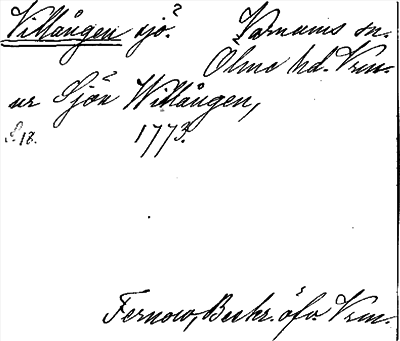 Villången sjö. Varnums sn.
Ölme hd. Vrm.
ur Sjön Willången,
S. 18. 1773.
Fernow, Beskr. öfv. Vrm.